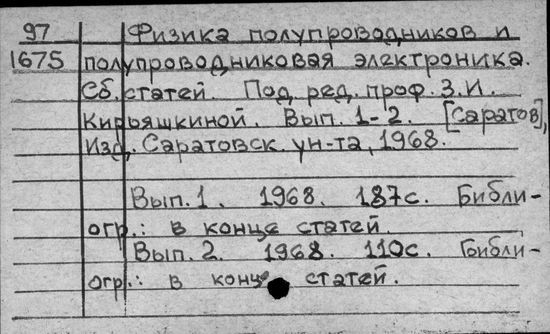 97 Физика полупроводников и
1675 полупроводниковая электроника.
Сб. статей. Под ред. проф. З.И.
Кирьяшкиной. Вып. 1-2. [Саратов],
Изд. Саратовск. ун-та, 1968.
Вып. 1. 1968. 187с. Библи-
огр.: в конце статей.
Вып. 2. 1968. 110с. Библи-
огр.: в конце статей.